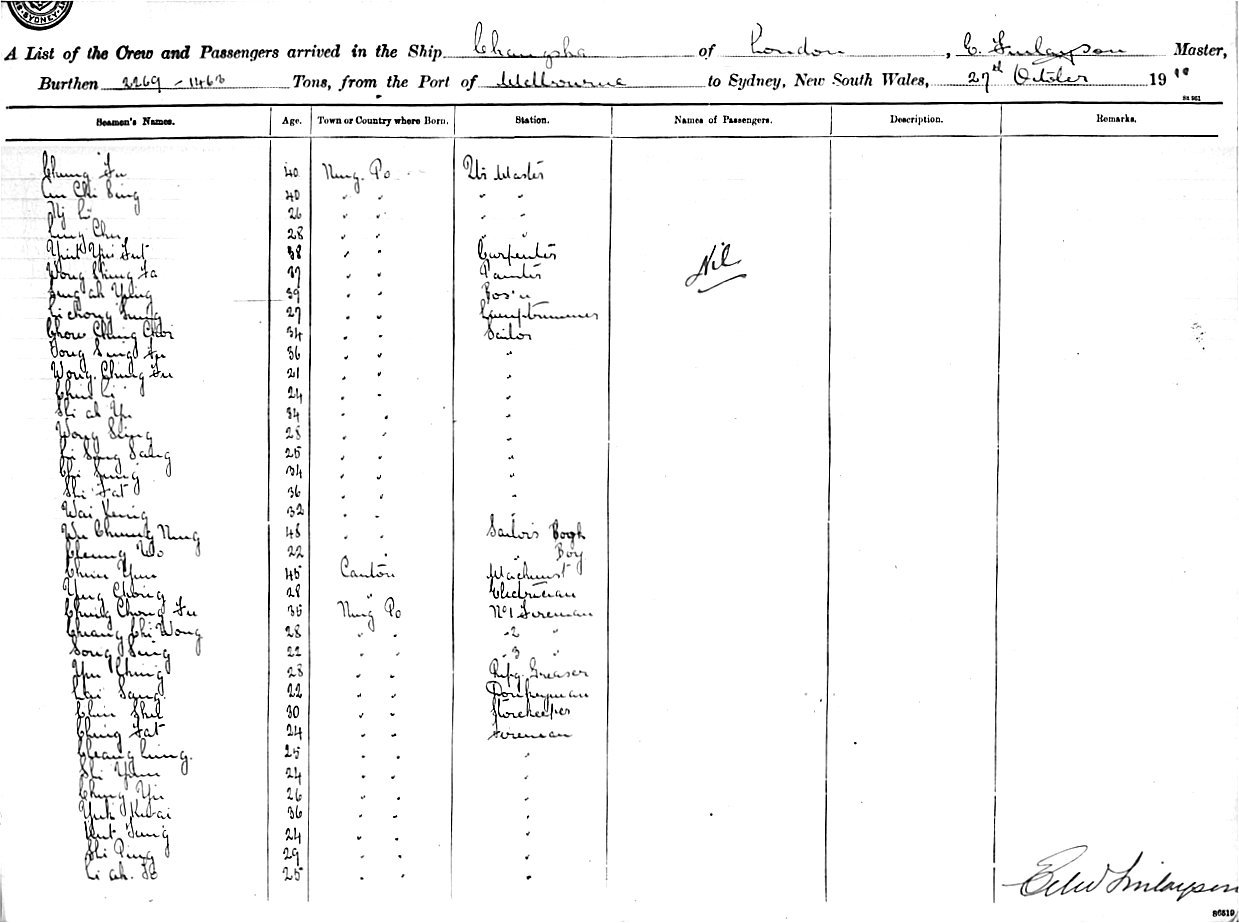 SYDNEY
A List of the Crew and Passengers arrived in the Ship Changsha of London, E. Finlayson Master,
Burthen 2269 - 1463 Tons, from the Port of Melbourne to Sydney, New South Wales, 27th October 19
Seamen's Names. Age. Town or Country where Born. Station. Names of Passengers. Description. Remarks.
Chung Fu 40 Ning Po Qr Master
Chi Sing 40 " " " "
26 " " " "
Ling Chu 28 " " " "
38 " " Carpenter
Wong Shing Fa 37 " " Painter
Nil
ah 39 " " Bos'n
Li Chong 27 " " Lamptrimmer
Chow Ching Choi 34 " " Sailor
Tong Sing Fu 36 " " "
Wong Ching Fu 21 " " "
Chin Li 24 " " "
Shi ah Yu 34 " " "
Wong Sing 28 " " "
Li Song Sang 25 " " "
Chi Sung 34 " " "
Shi Fat 36 " " "
Wai 32 " " "
Wu Chung Ning 48 " " Sailor's
Cheung Wo 22 " " " Boy
Chin Yun 45 Canton Machinist
Ying Chong 28 " Electrician
Ching Chong Fu 35 Ning Po No 1 Fireman
Chang Chi Wong 28 " " - 2 "
Song Sing 22 " " - 3 "
Yun Ching 28 " " Refg. Greaser
Lai Sang 22 " " Donkeyman
Chin 30 " " Storekeeper
Ching Fat 24 " " Fireman
Cheang Ling. 25 " " "
Shi Yam 24 " " "
Ching Yu 26 " " "
Yuk Kwai 36 " " "
Tung 24 " " "
Shi Ping 29 " " "
Li ah. 25 " " "
Finlayson